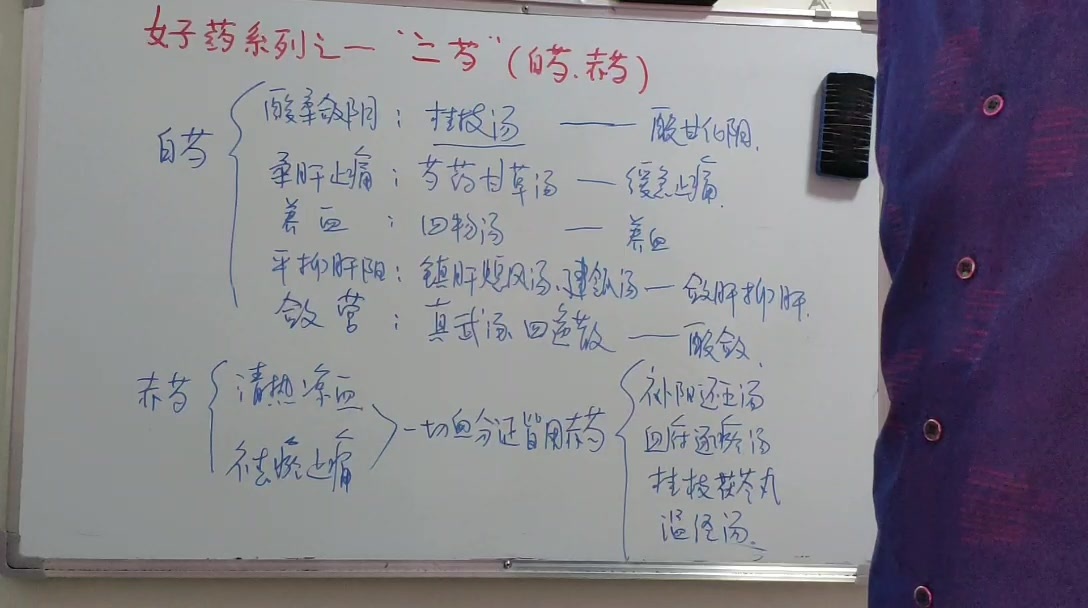 女子药系列之一“二芍”(白芍、赤芍)
白芍
酸柔敛阴：桂枝汤 —— 酸甘化阴.
柔肝止痛：芍药甘草汤 — 缓急止痛.
养血：四物汤 — 养血
平抑肝阳：镇肝熄风汤、建瓴汤 — 敛肝抑肝.
敛营：真武汤 四逆散 — 酸敛.
赤芍
清热凉血
祛瘀止痛
一切血分证皆用赤芍
补阳还五汤
血府逐瘀汤
桂枝茯苓丸
温经汤.